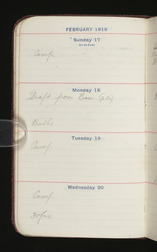 FEBRUARY 1918
Sunday 17
Camp
Monday 18
Draft from
Baths
Tuesday 19
Camp
Wednesday 20
Camp